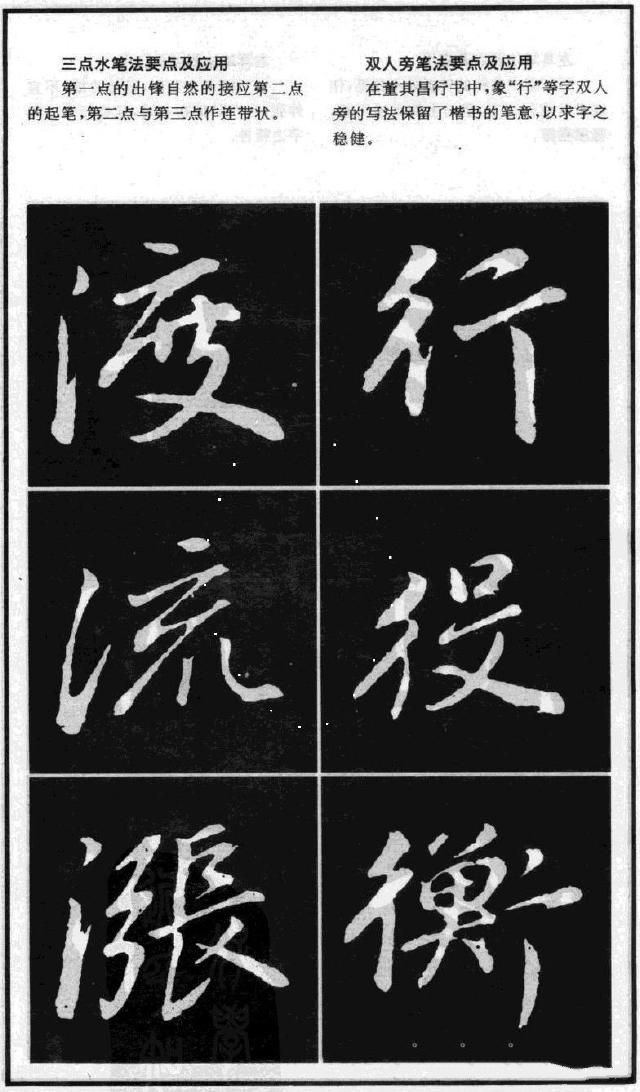 三点水笔法要点及应用
第一点的出锋自然的接应第二点
的起笔，第二点与第三点作连带状。
双人旁笔法要点及应用
在董其昌行书中，象“行”等字双人
旁的写法保留了楷书的笔意，以求字之
稳健。
渡
行
流
役
漲
衡